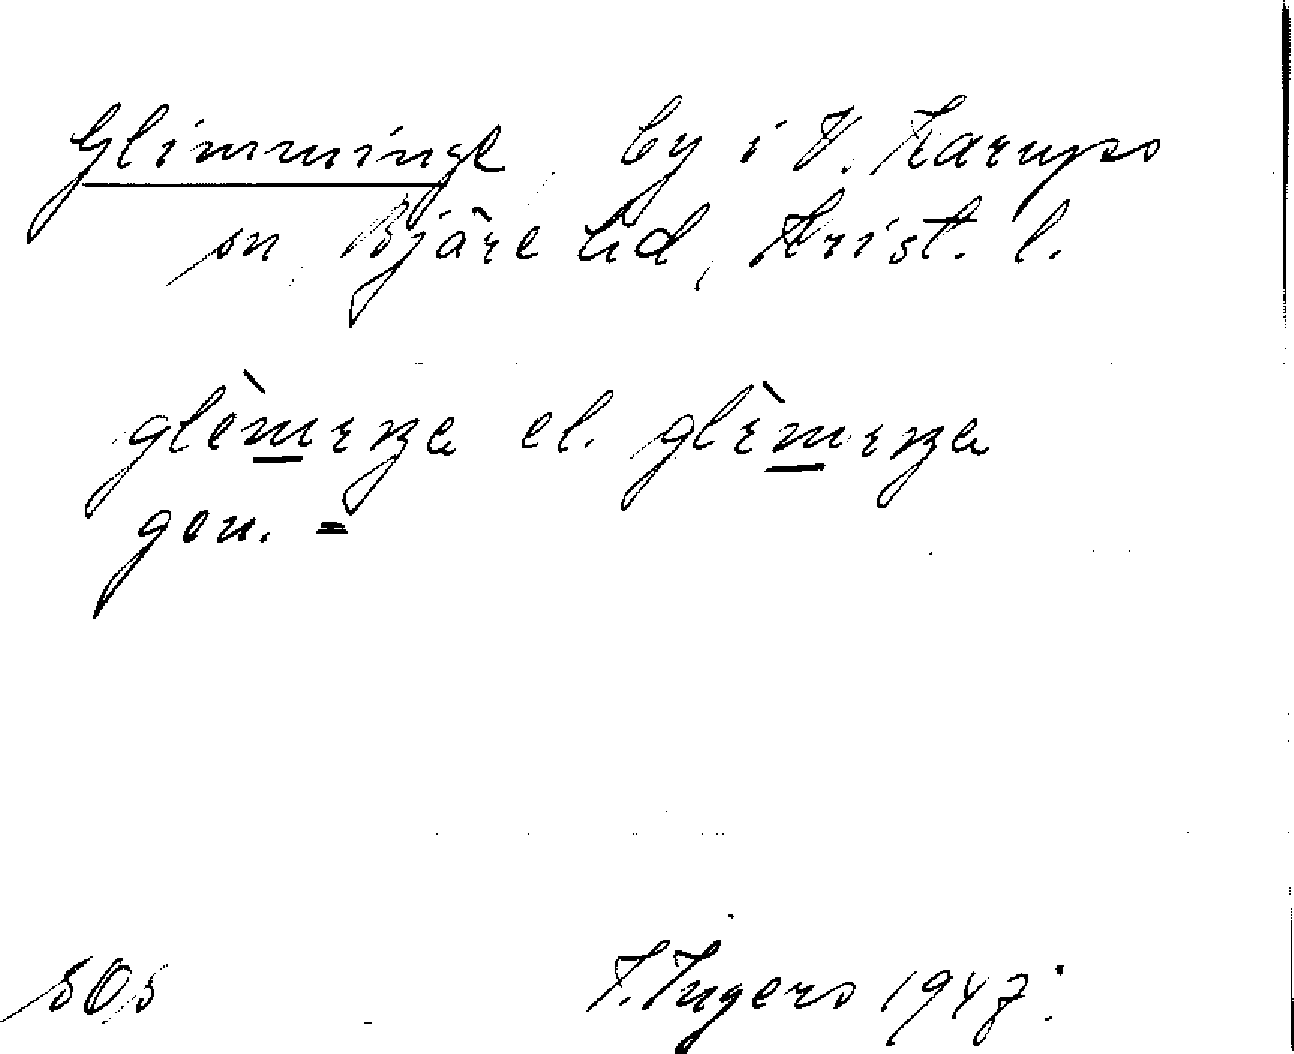 Glimminge, by i V. Karups
sn, Bjäre hd, Krist. l.
el.
gen. =
SOs I. Ingers 1947.